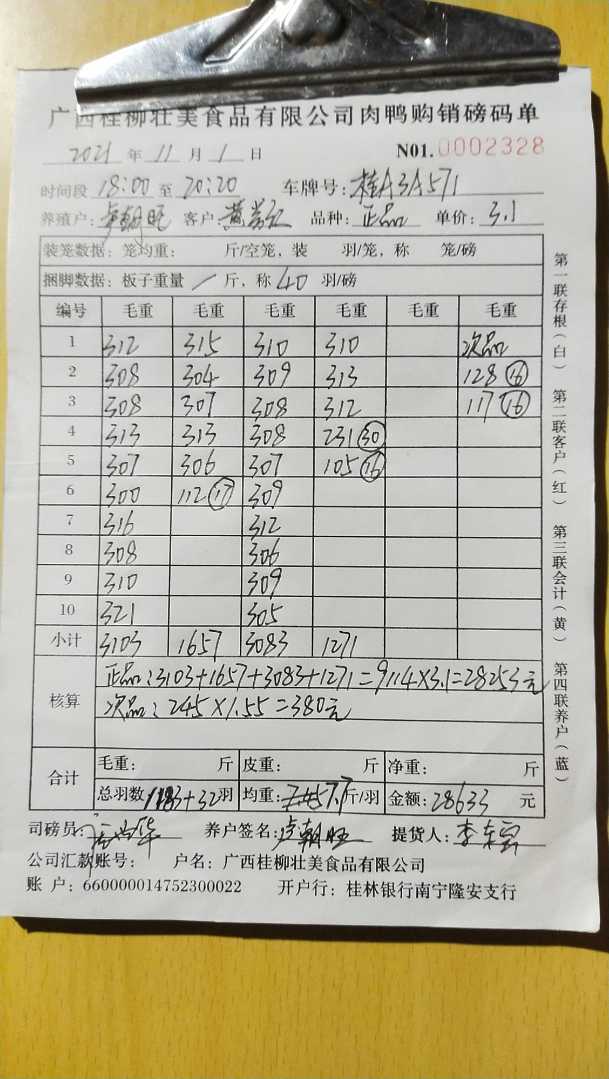 广西桂柳壮美食品有限公司肉鸭购销磅码单
2021 年 11 月 1 日 N01.0002328
时间段 18:00 至 20:20 车牌号: 桂A3A571
养殖户: 卢朝旺 客户: 黄 品种: 正品 单价: 3.1
装笼数据: 笼均重: 斤/空笼, 装 羽/笼, 称 笼/磅
捆脚数据: 板子重量 / 斤, 称 40 羽/磅
编号 毛重 毛重 毛重 毛重 毛重 毛重
1 312 315 310 310 次品
2 308 304 309 313 128 ⑯
3 308 307 308 312 117 ⑯
4 313 313 308 231 ㉚
5 307 306 307 105 ⑯
6 300 112 ⑰ 309
7 316 312
8 308 306
9 310 309
10 321 305
小计 3103 1657 3083 1271
核算 正品:3103+1657+3083+1271=9114×3.1=28253元
次品:245×1.55=380元
合计 毛重: 斤 皮重: 斤 净重: 斤
总羽数 1183+32羽 均重: 7.7斤/羽 金额: 28633 元
司磅员: 养户签名: 卢朝旺 提货人: 李
公司汇款账号: 户名: 广西桂柳壮美食品有限公司
账 户: 660000014752300022 开户行: 桂林银行南宁隆安支行
第一联存根(白) 第二联客户(红) 第三联会计(黄) 第四联养户(蓝)